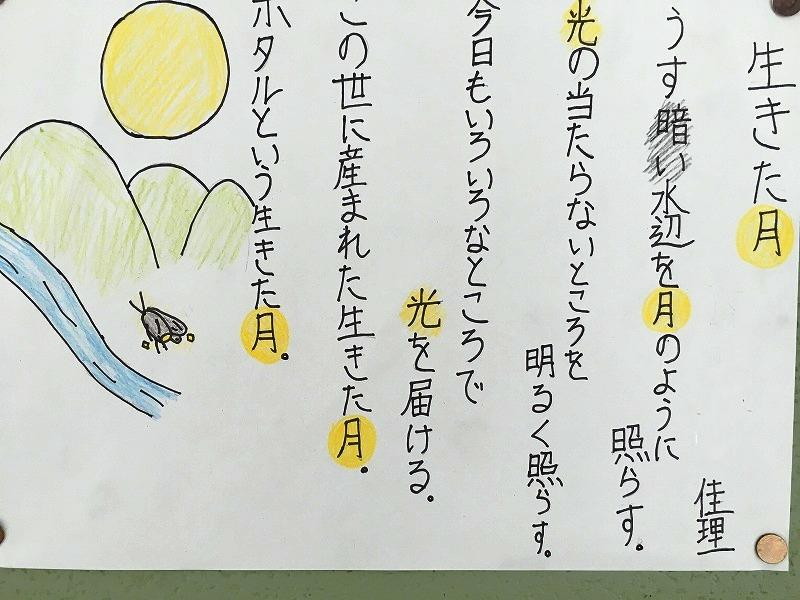 生きた月
佳理
うす暗い水辺を月のように
照らす。
光の当たらないところを
明るく照らす。
今日もいろいろなところで
光を届ける。
この世に産まれた生きた月。
ホタルという生きた月。